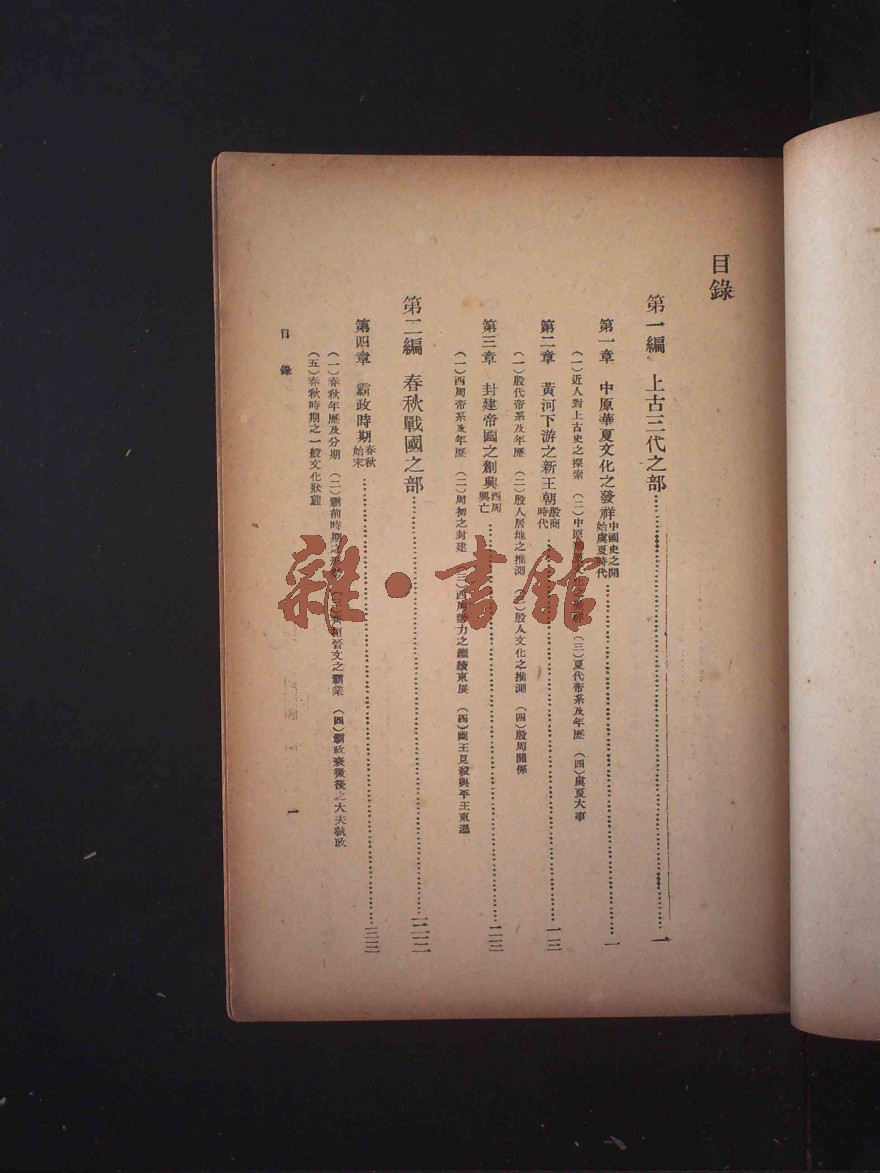 目錄
第一編 上古三代之部……一
第一章 中原華夏文化之發祥 中國史之開始虞夏時代……一
(一)近人對上古史之探索 (二)中原華夏文化之發祥 (三)夏代帝系及年歷 (四)虞夏大事
第二章 黃河下游之新王朝 殷商時代……一三
(一)殷代帝系及年歷 (二)殷人居地之推測 (三)殷人文化之推測 (四)殷周關係
第三章 封建帝國之創興 西周興亡……二三
(一)西周帝系及年歷 (二)周初之封建 (三)西周勢力之繼續東展 (四)幽王見殺與平王東遷
第二編 春秋戰國之部……
第四章 霸政時期 春秋始末……三三
(一)春秋年歷及分期 (二)霸前時期之 (三)齊桓晉文之霸業 (四)霸政衰微後之大夫執政
(五)春秋時期之一般文化狀態
目錄
一
雜·書館